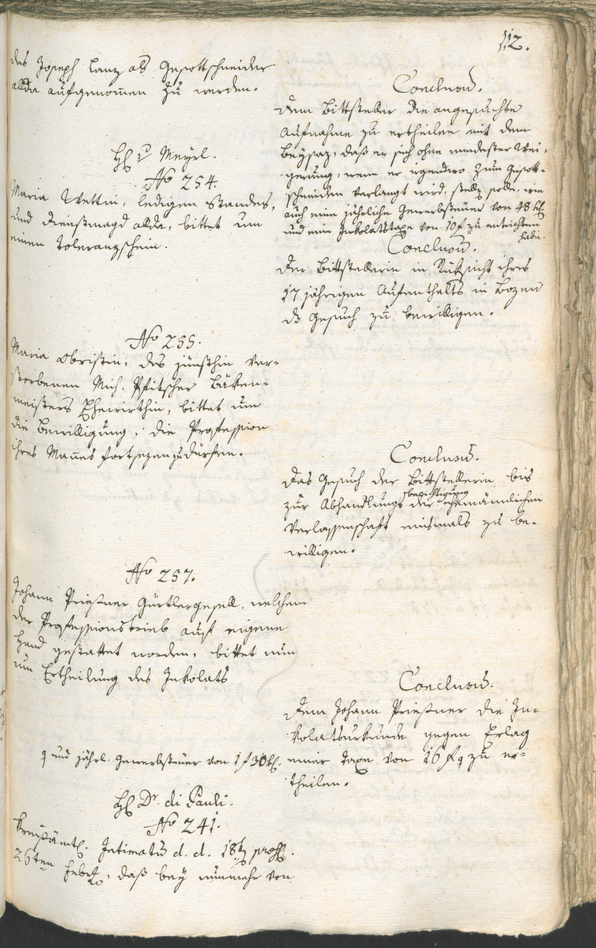 112.
des Joseph Lanz als Gspottschneider
allda aufgenommen zu werden.
Conclusum.
Dem Bittsteller die angesuchte
Aufnahme zu ertheilen mit dem
Beysaz, daß er sich ohne mindester Wei-
gerung, wenn er irgendwo zum
schneiden verlangt wird, stellen solle, wie
auch eine jährliche Gewerbsteuer von 48 kr
und eine Inkolatstaxe von 10f zu entrichten
habe.
H. v. Meyrl.
No 254.
Maria Wettin, ledigen Standes,
und Dienstmagd allda, bittet um
einen Toleranzschein.
Conclusum.
Der Bittstellerin in Rücksicht ihres
17 jährigen Aufenthalts in Bozen
das Gesuch zu bewilligen.
No 255.
Maria Obristin, des jüngsthin ver-
storbenen Mich. Pfitscher Bäken-
meisters Ehewirthin, bittet um
die Bewilligung, die Profession
ihres Mannes fortsezen zu dürfen.
Conclusum.
Das Gesuch der Bittstellerin bis
zur Abhandlungs
berichtigung
der ehemännlichen
Verlassenschaft einsmals zu be-
willigen.
No 257.
Johann Priestner Gürtlergesell, welchem
der Professionstrieb auf eigene
Hand gestattet worden, bittet nun
um Ertheilung des Inkolats
Conclusum.
Dem Johann Priestner die In-
kolatsurkunde gegen Erlag
einer Taxe von 16 f 9 zu er-
theilen.
9 und jährl. Gewerbsteuer von 1 f 30 kr.
H. Dr. di Pauli.
No 241.
Kreisämtl. Intimatum d. d. 18t, präs.
26ten, daß bey nunmehr von